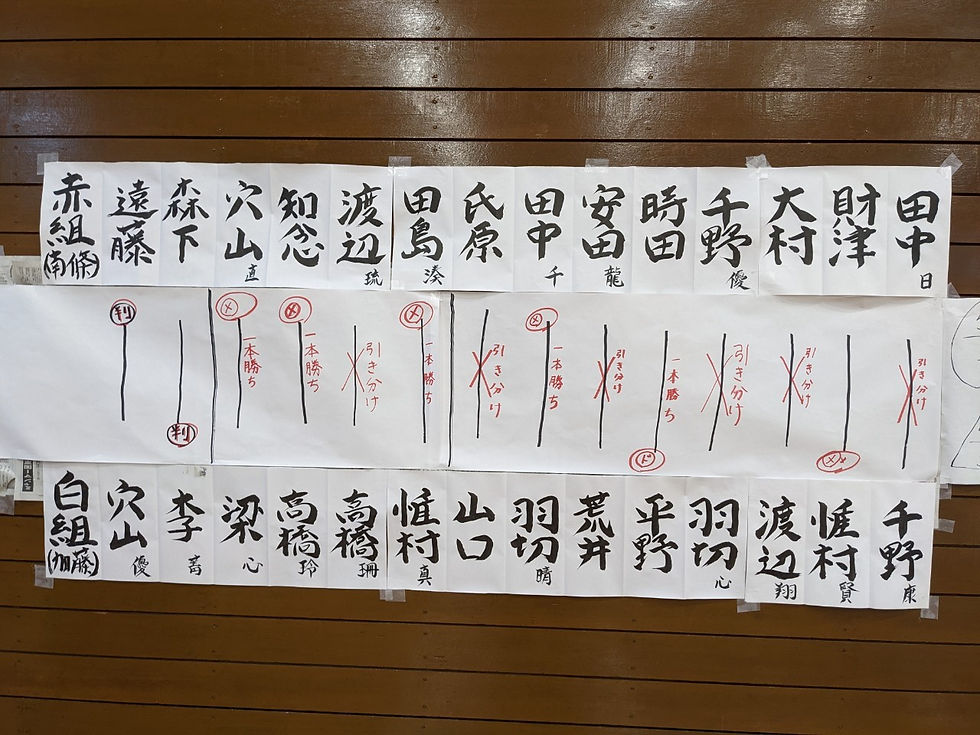 赤組(南條)
遠藤
森下
穴山 直
知念
渡辺 琉
田島 湊
氏原
田中 千
安田 龍
時田
千野 優
大村
財津
田中 日
判
判
メ 一本勝ち
メ 一本勝ち
引き分け
メ 一本勝ち
引き分け
メ 一本勝ち
引き分け
一本勝ち ド
引き分け
引き分け
メメ
引き分け
白組(加藤)
穴山 優
李
梁 心
高橋 玲
高橋 珊
惟村 真
山口
羽切 晴
荒井
平野
羽切 心
渡辺 翔
惟村 賢
千野 康